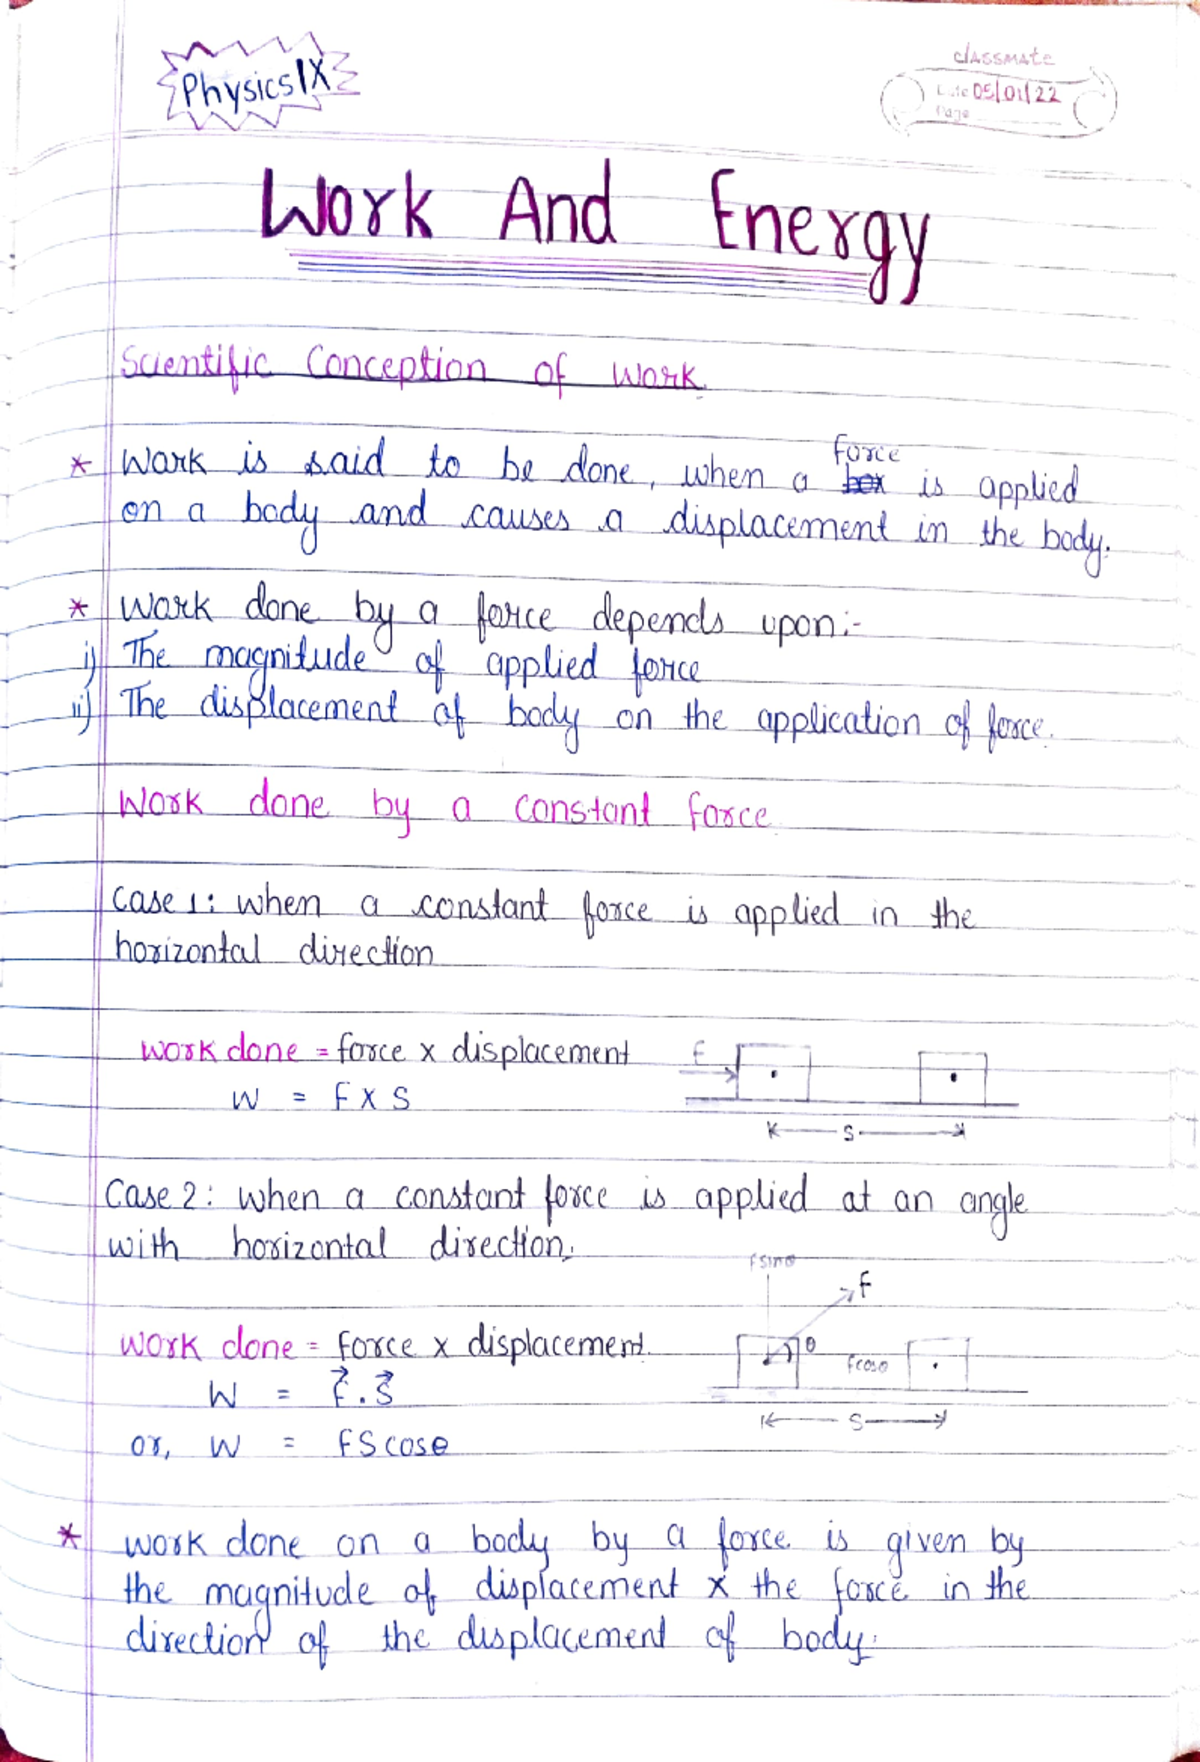 Physics IX
classmate
Date 05/01/22
Page
Work And Energy
Scientific Conception of Work.
* Work is said to be done, when a box force is applied
on a body and causes a displacement in the body.
* Work done by a force depends upon:-
i) The magnitude of applied force
ii) The displacement of body on the application of force.
Work done by a constant force
Case 1: when a constant force is applied in the
horizontal direction
work done = force x displacement
W = F X S
F
S
Case 2: when a constant force is applied at an angle
with horizontal direction.
Fsinθ
F
work done = force x displacement.
θ
Fcosθ
W = F⃗ . S⃗
S
or, W = FS cosθ
* work done on a body by a force is given by
the magnitude of displacement x the force in the
direction of the displacement of body.